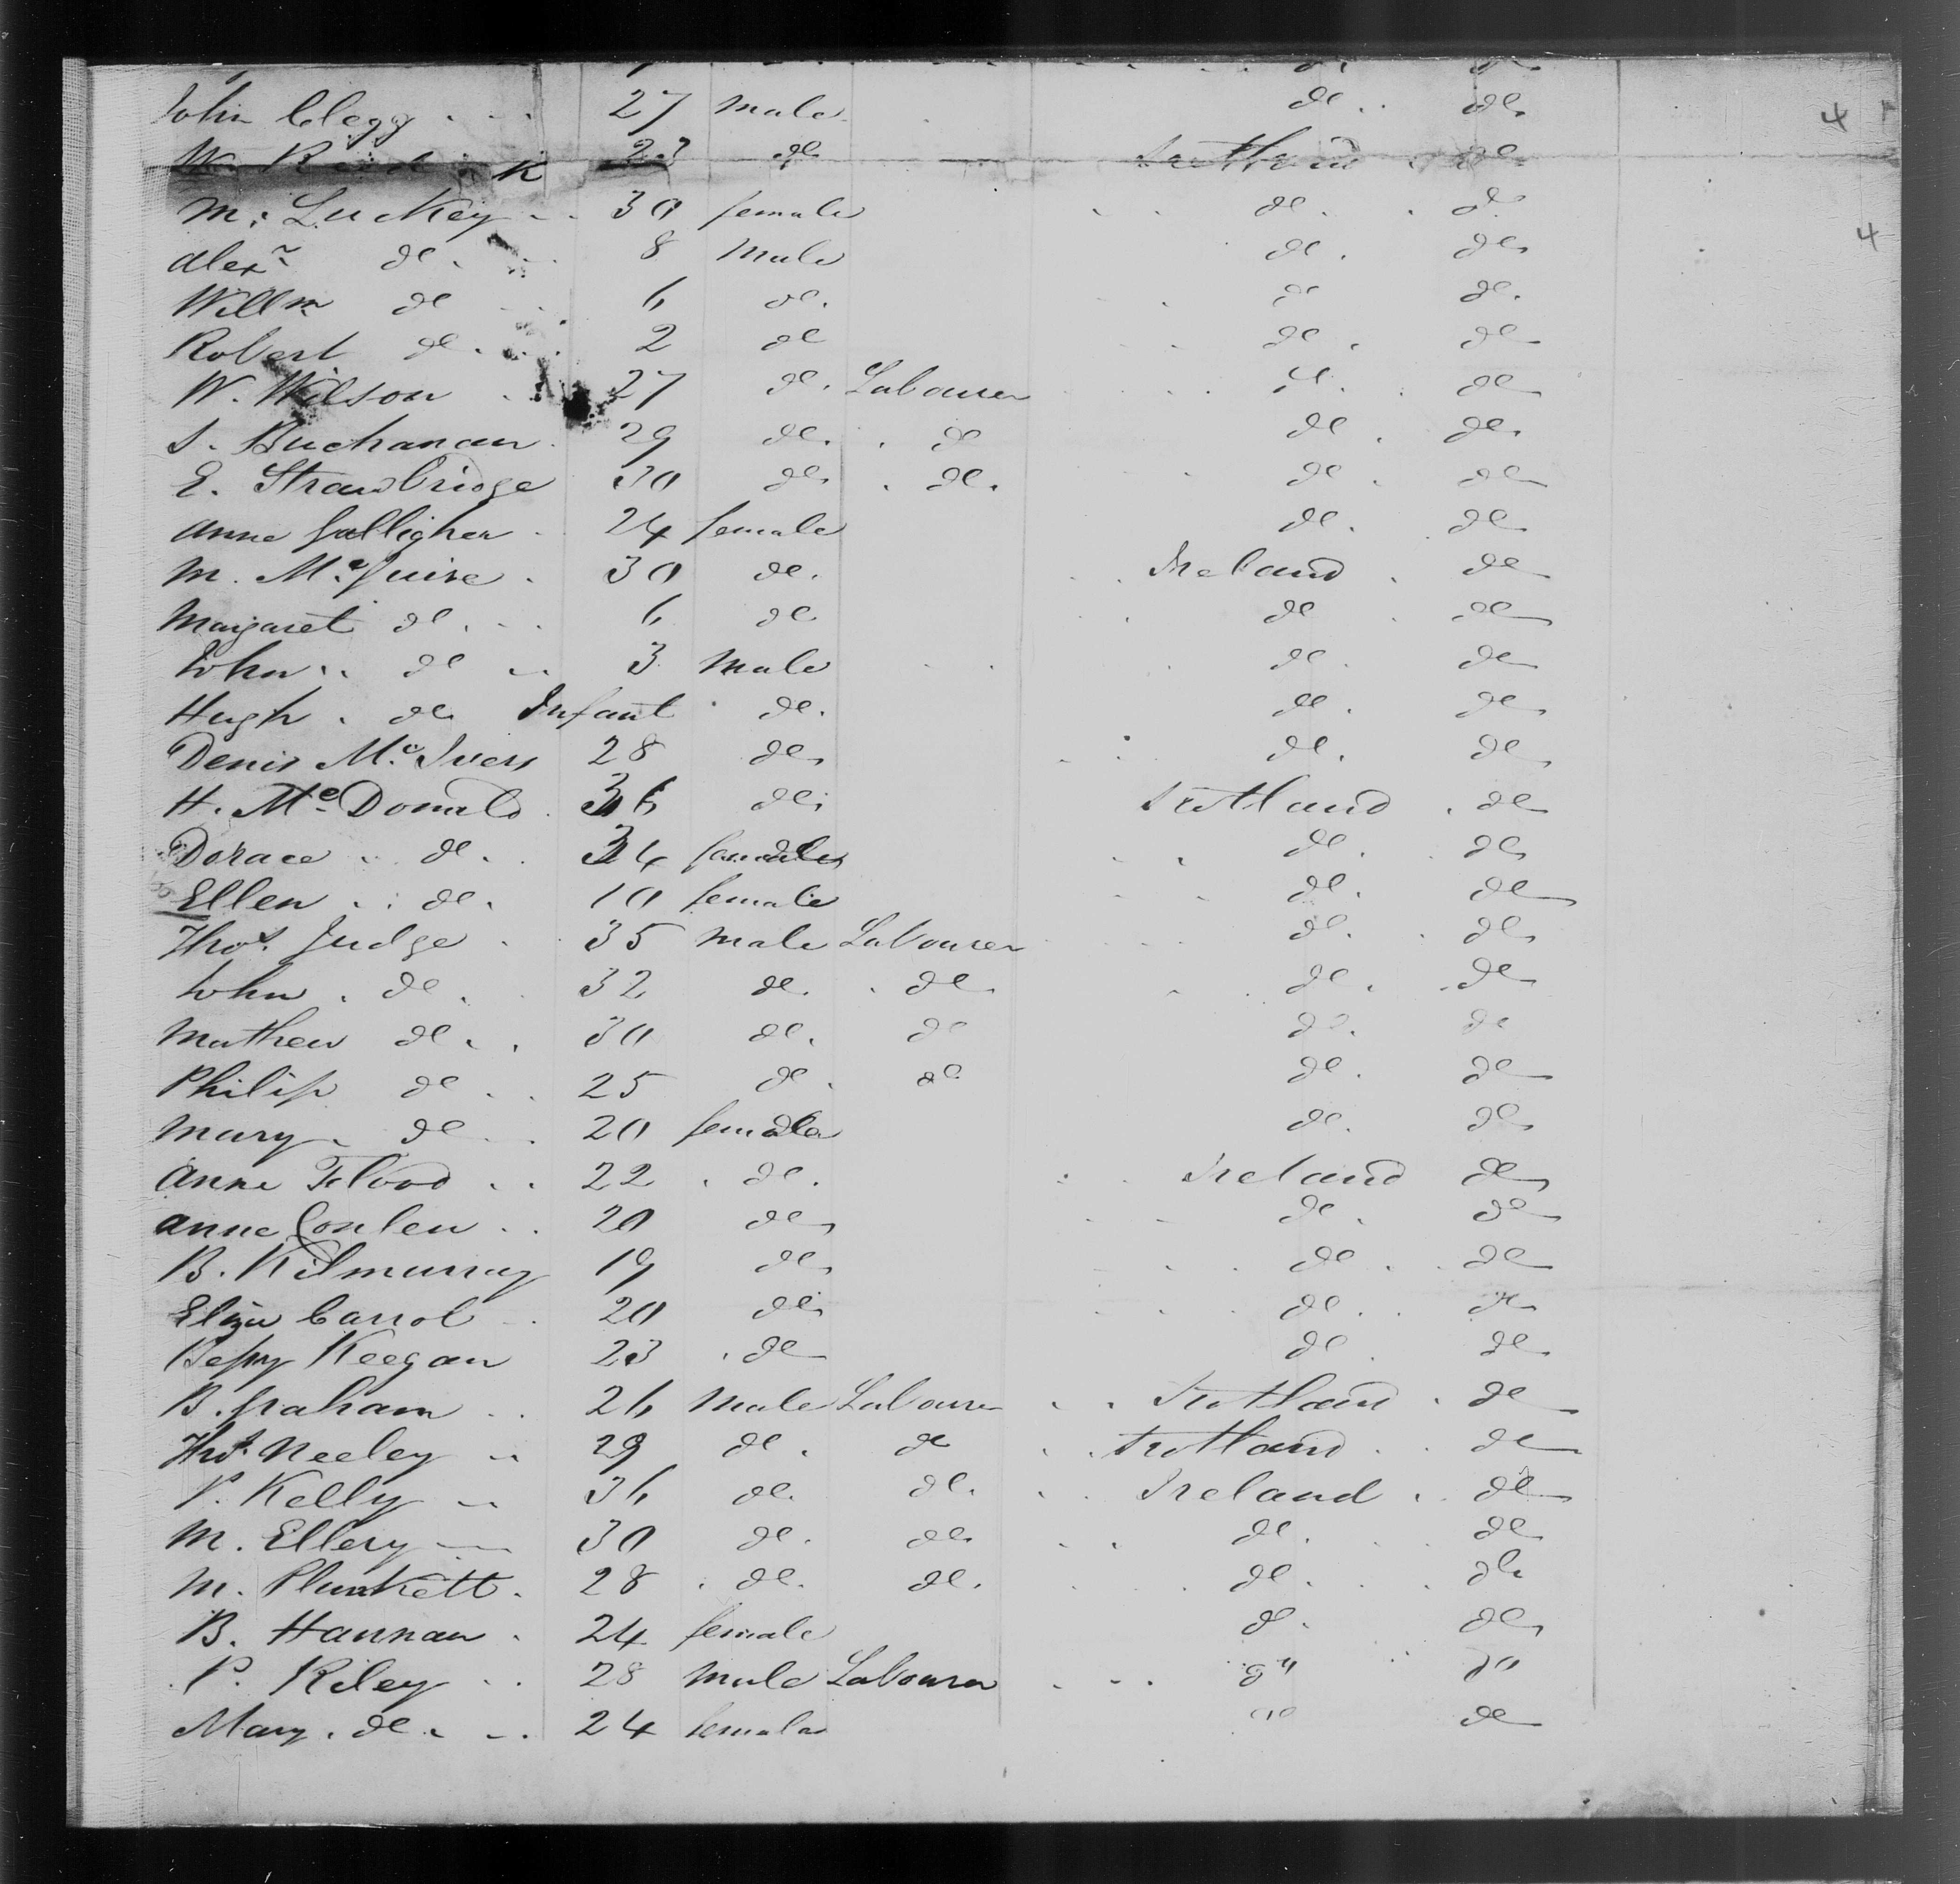 John Clegg 27 male do do 4
Wm 23 do Scotland do
M. Luckey 30 female do do
Alexr do 8 Male do do 4
Willm do 6 do do do
Robert do 2 do do do
W. Wilson 27 do Labourer do do
S. Buchanan 29 do do do do
E. Strawbridge 30 do do do do
Anne Galligher 24 female do do
M. Mc Guire 30 do Ireland do
Margaret do 6 do do do
John do 3 Male do do
Hugh do Infant do do do
Denis Mc Ivers 28 do do do
H. Mc Donald 36 do Scotland do
Dorace do 34 female do do
Ellen do 10 female do do
Thos. Judge 35 Male Labourer do do
John do 32 do do do do
Mathew do 30 do do do do
Philip do 25 do do do do
Mary do 20 female do do
Anne Flood 22 do Ireland do
Anne Conlen 20 do do do
B. Kilmurray 19 do do do
Eliza Carrol 20 do do do
Bessy Keegan 23 do do do
B. Graham 26 Male Labourer Scotland do
Thos. Neeley 29 do do Scotland do
P. Kelly 36 do do Ireland do
M. Ellery 30 do do do do
M. Plunkett 28 do do do do
B. Hannan 24 female do do
P. Riley 28 Male Labourer do do
Mary do 24 female do do